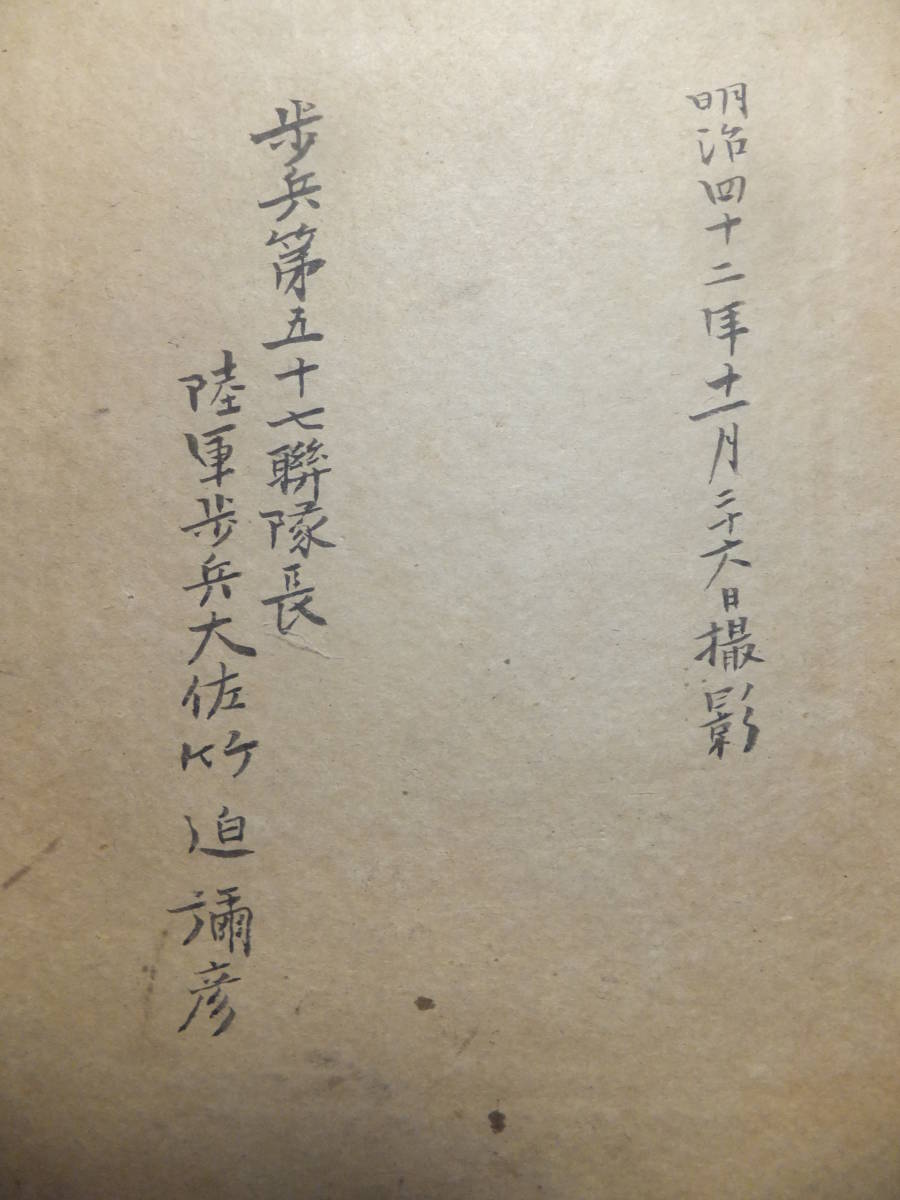 明治四十二年十一月二十六日撮影
歩兵第五十七聯隊長
陸軍歩兵大佐竹迫彌彦